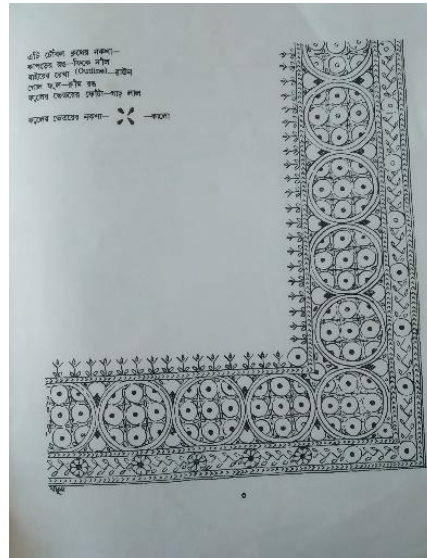 এটি টেবিল ক্লথের নকশা—
কাপড়ের রঙ—ফিকে নীল
বাইরের রেখা (Outline)—ব্রাউন
গোল ফুল—ক্রীম রঙ
ফুলের ভেতরের ফোঁটা—গাঢ় লাল
ফুলের ভেতরের নকশা— —কালো
৩